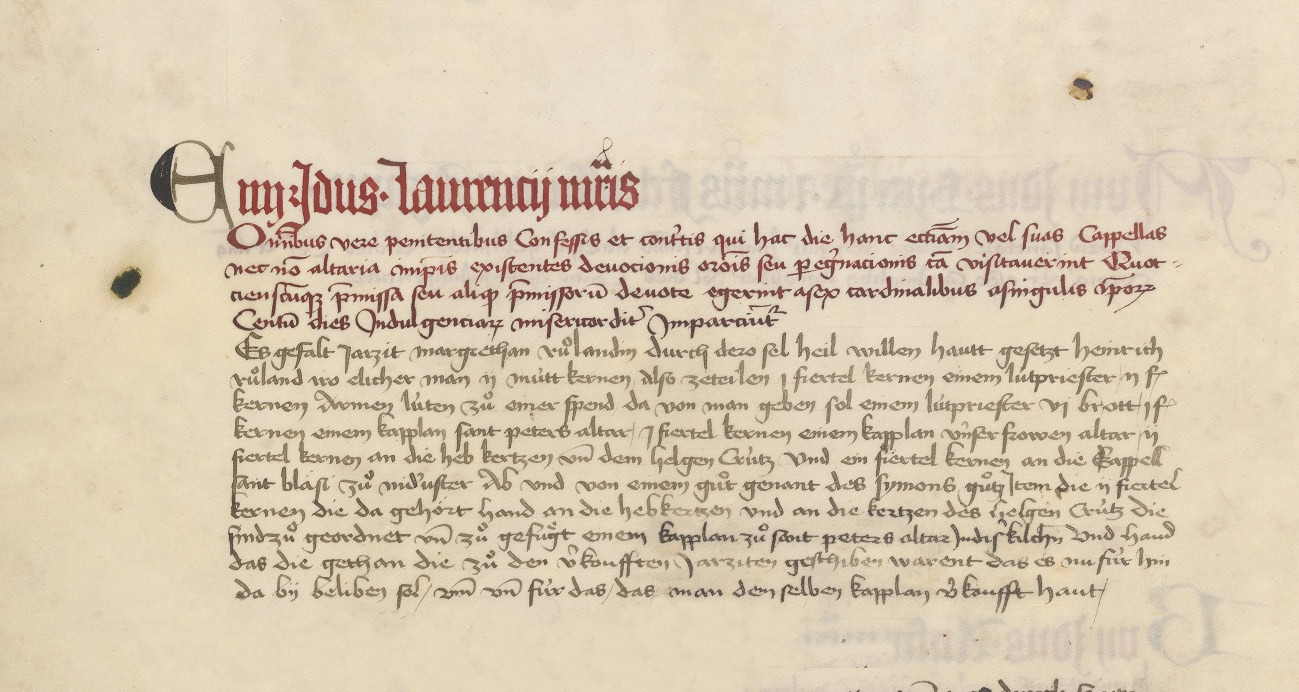 E iiij · Idus · Laurencij mr̄is
Om̄ibus vere penitentibus Confessis et contˀtis qui hac die hanc ecciā̄m vel suas Cappellas
nec nō altaria inip̄is existentes devocionis orōis seu ꝑegˀnacionis cā visitaverint Quot-
ciensc̄uqꝫ p̄missa seu aliqꝫ p̄missorū devote egerint asex cardinalibus asingulis ip̄oꝝ
Centū dies Indulgenciaꝝ misericorditˀ Imparciūtˀ
Es gefalt Jarzit margrethan ruͦlandin durch dero sel heil willen hautt gesetzt heinrich
ruͦland iro elicher man ij mütt kernen also zeteilen j fiertel kernen einem lütpriester / ij f̄
kernen Armen lüten zuͦ einer spend da von man geben sol einem lütpriester vj brott / j f̄
kernen einem kapplan sant peters altar / j fiertel kernen einem kapplan vn̄ser frowen altar / ij
fiertel kernen an die heb kertzen vn̄ dem helgen Crütz Vnd ein fiertel kernen an die Cappell
sant blasi zuͦ nidˀuster Ab vnd von einem guͦt genant des symons guͦtz Item die ij fiertel
kernen die da gehört hand an die hebkertzen vnd an die kertzen des helgen Crütz die
sind zuͦ geordnet vn̄ zuͦ gefuͤgt einem kapplan zuͦ sant peters altar Jn disˀ kilchn̄ Vnd hand
das die gethan die zuͦ den vˀkoufften Jarziten geschiben warent das es nu für hin
da bij beliben sol / vm̄ vn̄ für das / das man dem selben kapplan vˀkoufft haut /